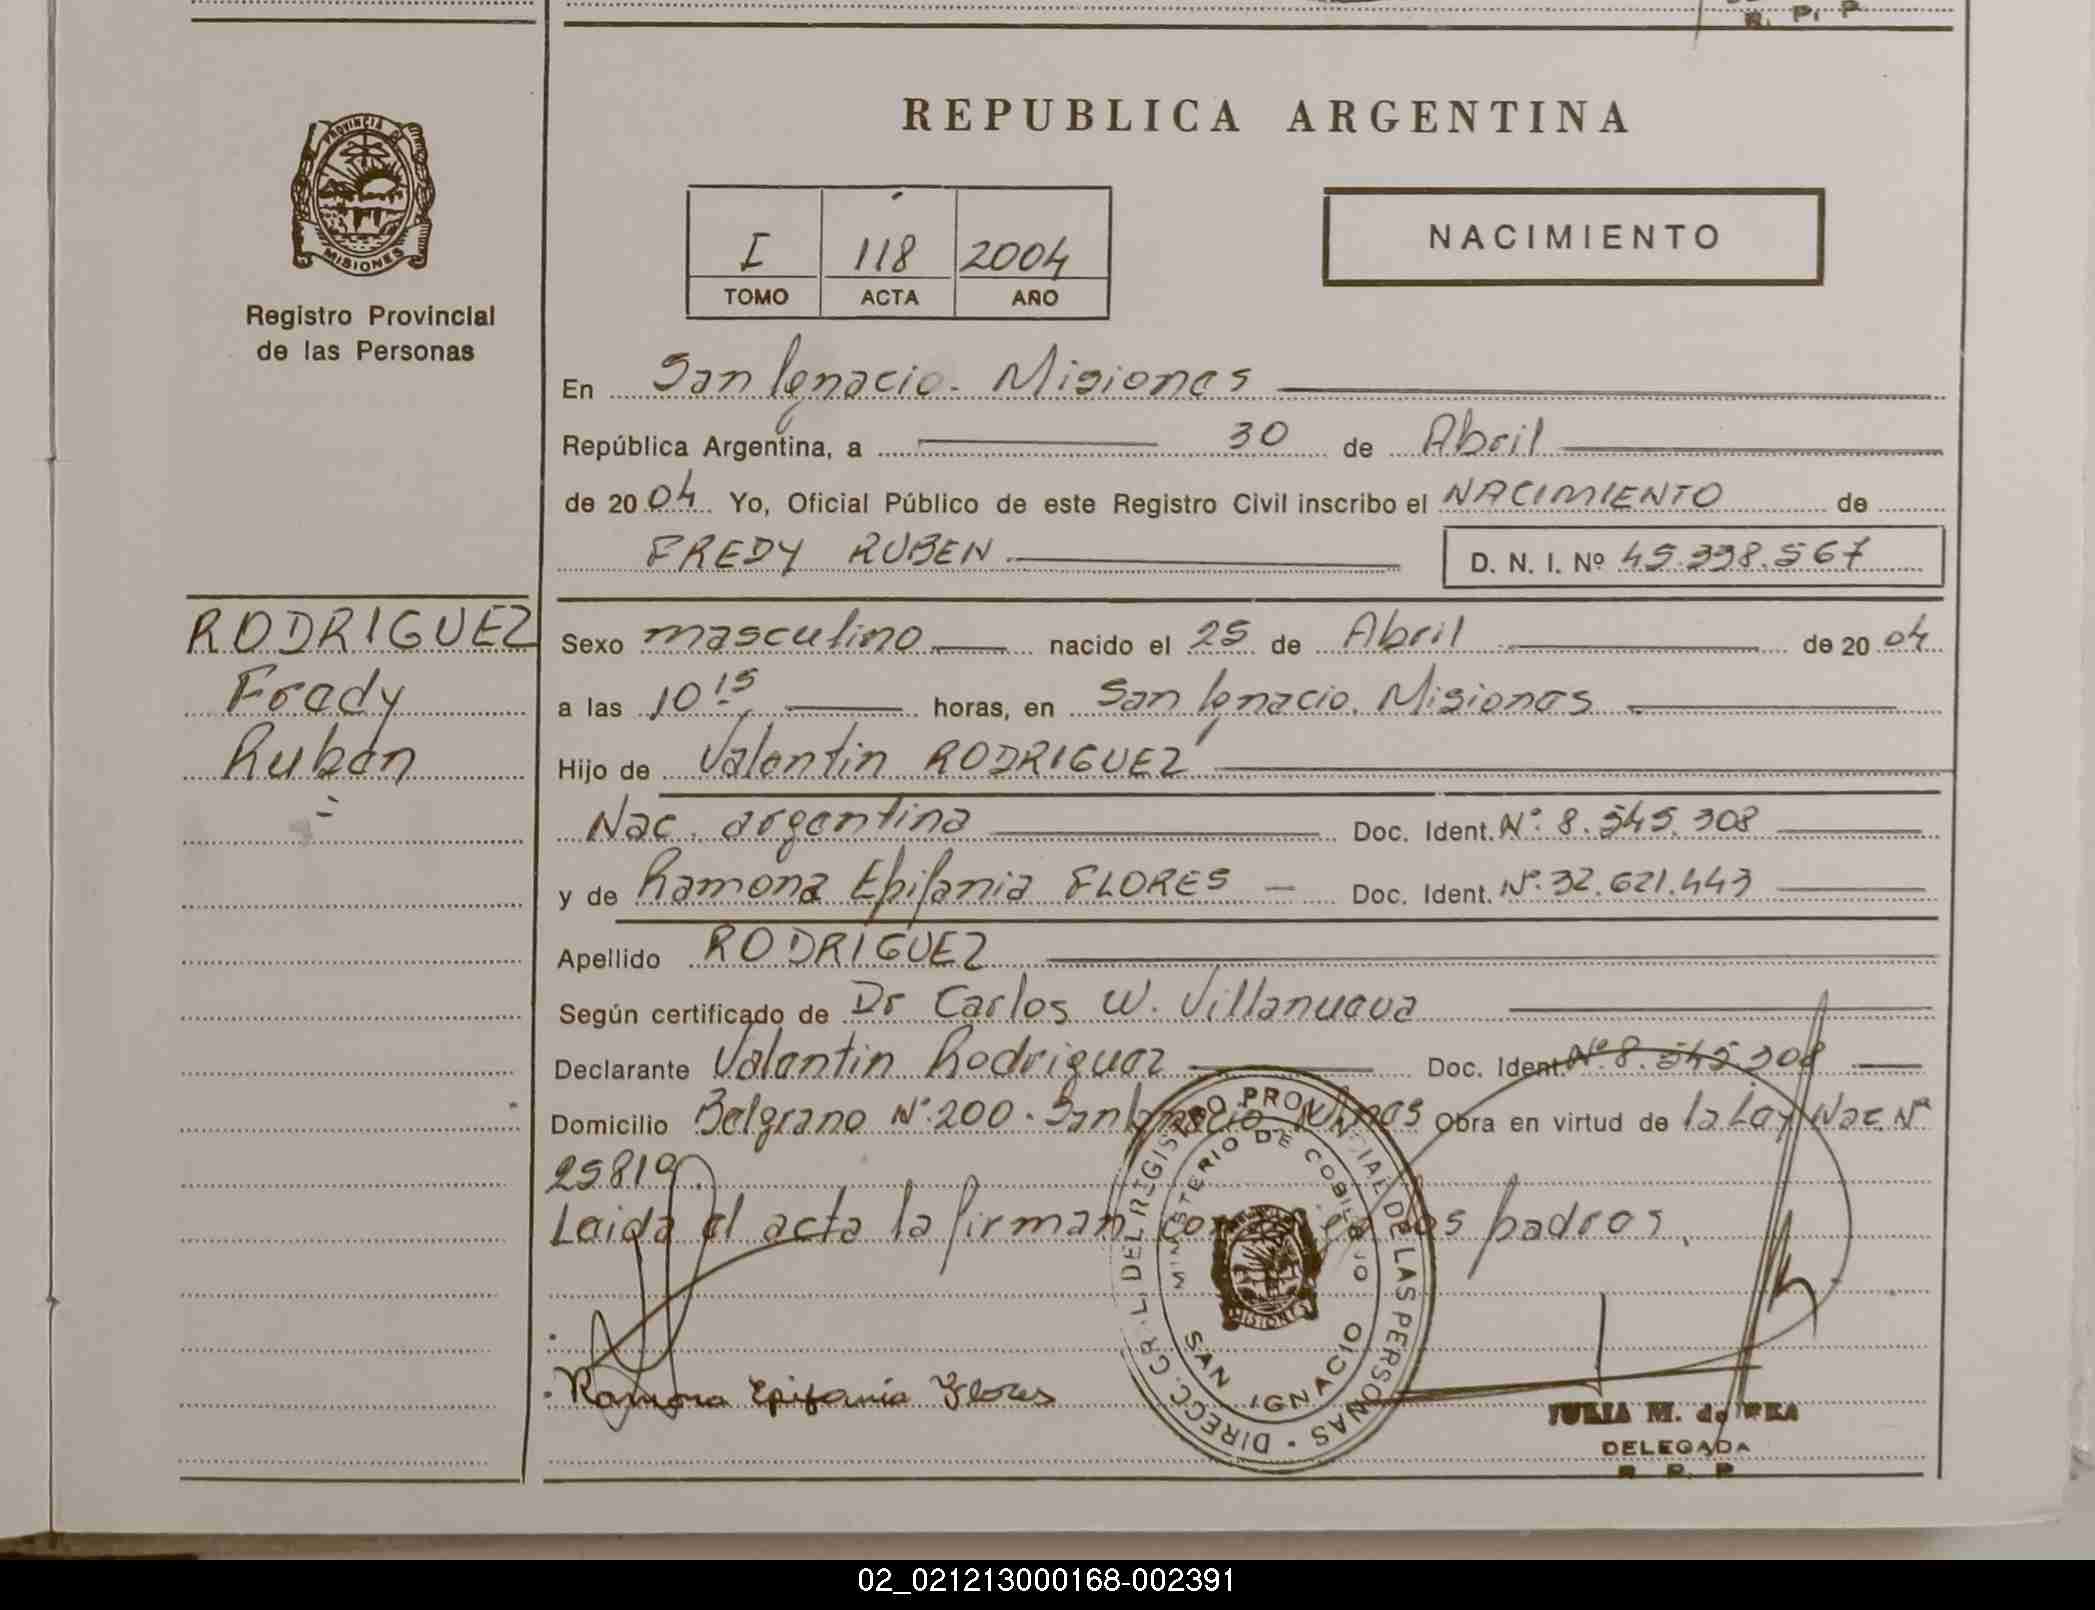 R. P. P.
PROVINCIA DE
MISIONES
Registro Provincial
de las Personas
REPUBLICA ARGENTINA
I 118 2004
TOMO ACTA AÑO
NACIMIENTO
En San Ignacio. Misiones
República Argentina, a 30 de Abril
de 2004 Yo, Oficial Público de este Registro Civil inscribo el NACIMIENTO de
FREDY RUBEN D. N. I. Nº 45.398.567
RODRIGUEZ
Fredy
Ruben
Sexo masculino nacido el 25 de Abril de 2004
a las 10 15 horas, en San Ignacio. Misiones
Hijo de Valentin RODRIGUEZ
Nac. argentina Doc. Ident. Nº 8.545.308
y de Ramona Epifania FLORES Doc. Ident. Nº 32.621.443
Apellido RODRIGUEZ
Según certificado de Dr Carlos W. Villanueva
Declarante Valentin Rodriguez Doc. Ident. Nº 8.545.308
Domicilio Belgrano Nº 200. San Ignacio Mnes Obra en virtud de la Ley Nac. Nº
25819.
Leida el acta la firman los padres.
Ramona Epifania Flores
DIRECC. GRAL. DEL REGISTRO PROVINCIAL DE LAS PERSONAS
MINISTERIO DE GOBIERNO
MISIONES
SAN IGNACIO
JULIA M. de
DELEGADA
R. P. P.
02_021213000168-002391